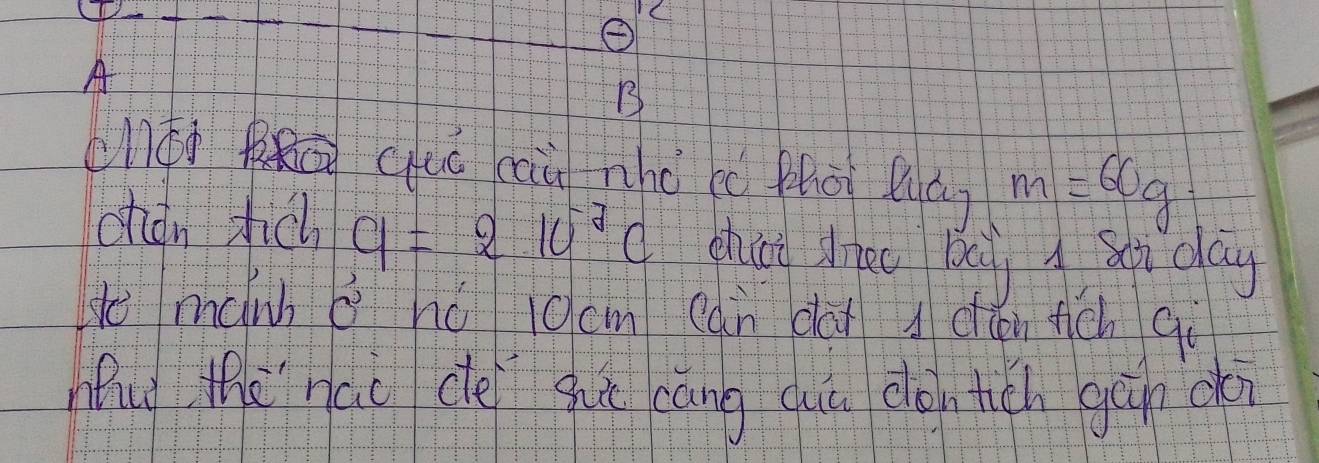 A
B
Một quả cầu nhỏ có khối lượng m = 60g
điện tích q = 2 10⁻⁷ C được treo bằng 1 sợi dây
tơ mảnh ở nó 10cm cần đặt 1 điện tích q₂
như thế nào để sức căng của điện tích gấp đôi